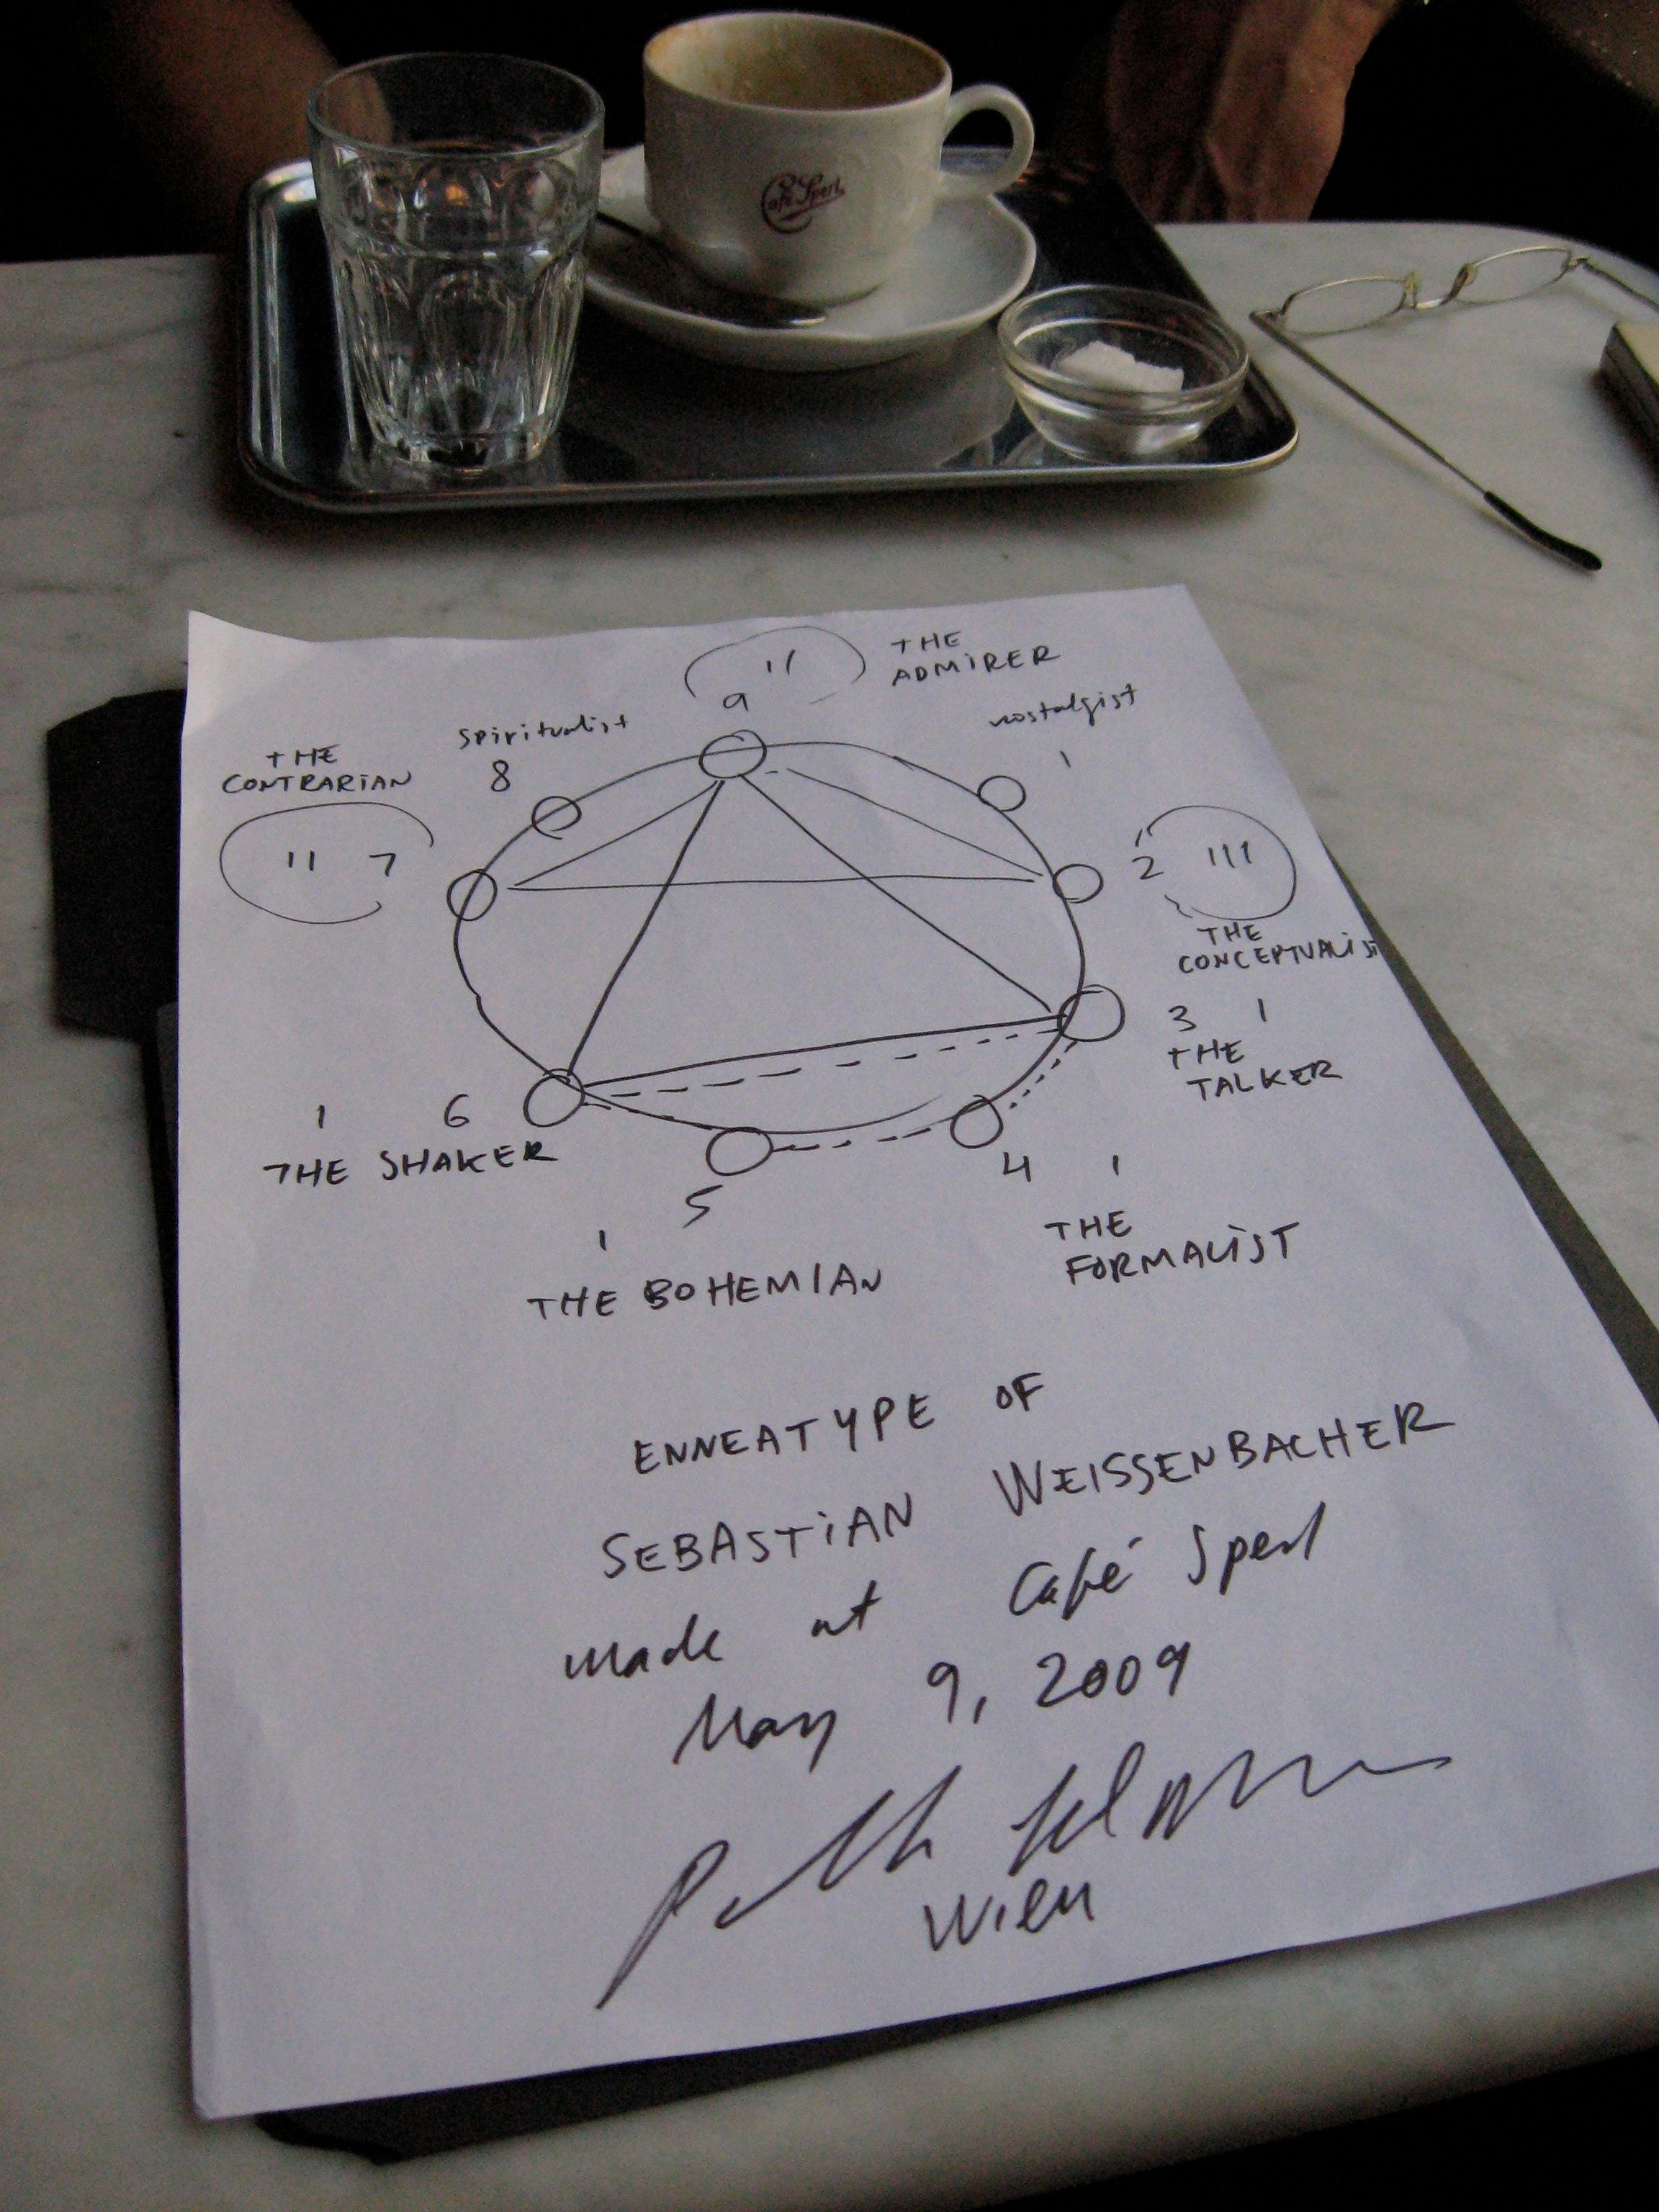 Café Sperl
THE
ADMIRER
11
9
nostalgist
1
spiritualist
8
THE
CONTRARIAN
11 7
2 111
THE
CONCEPTUALIST
3 1
THE
TALKER
1 6
THE SHAKER
4 1
THE
FORMALIST
5
1
THE BOHEMIAN
ENNEATYPE OF
SEBASTIAN WEISSENBACHER
made at Café Sperl
May 9, 2009
Wien